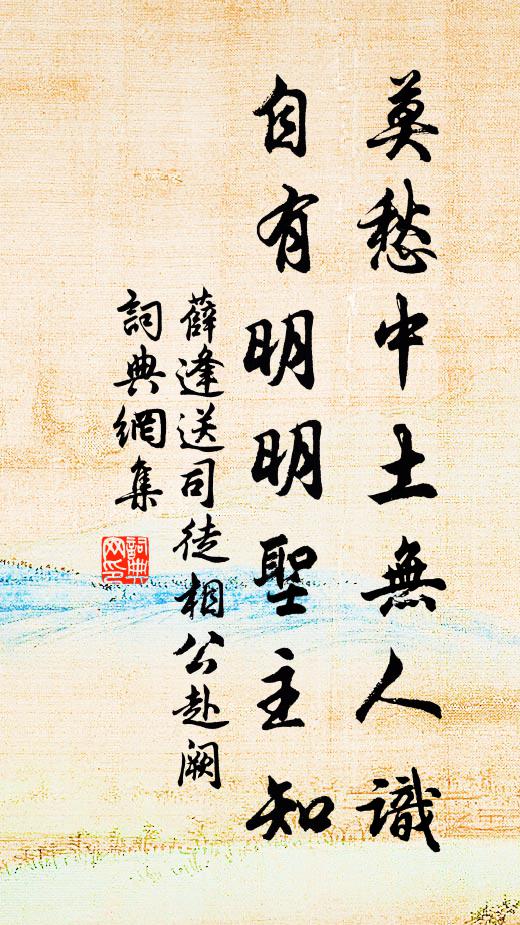 莫愁中土無人識
自有明明聖主知
薛逢送司徒相公赴阙
詞典網集
詞典网印